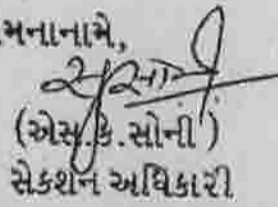 મનાનામે,
(એસ.કે.સોની )
સેકશન અધિકારી